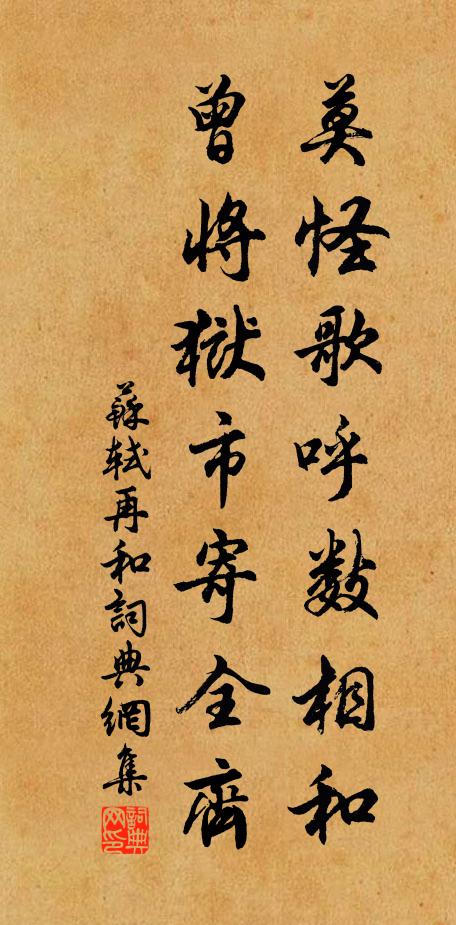 莫怪歌呼数相和
曾將獄市寄全齊
蘇軾再和詞典網集
詞典
网印